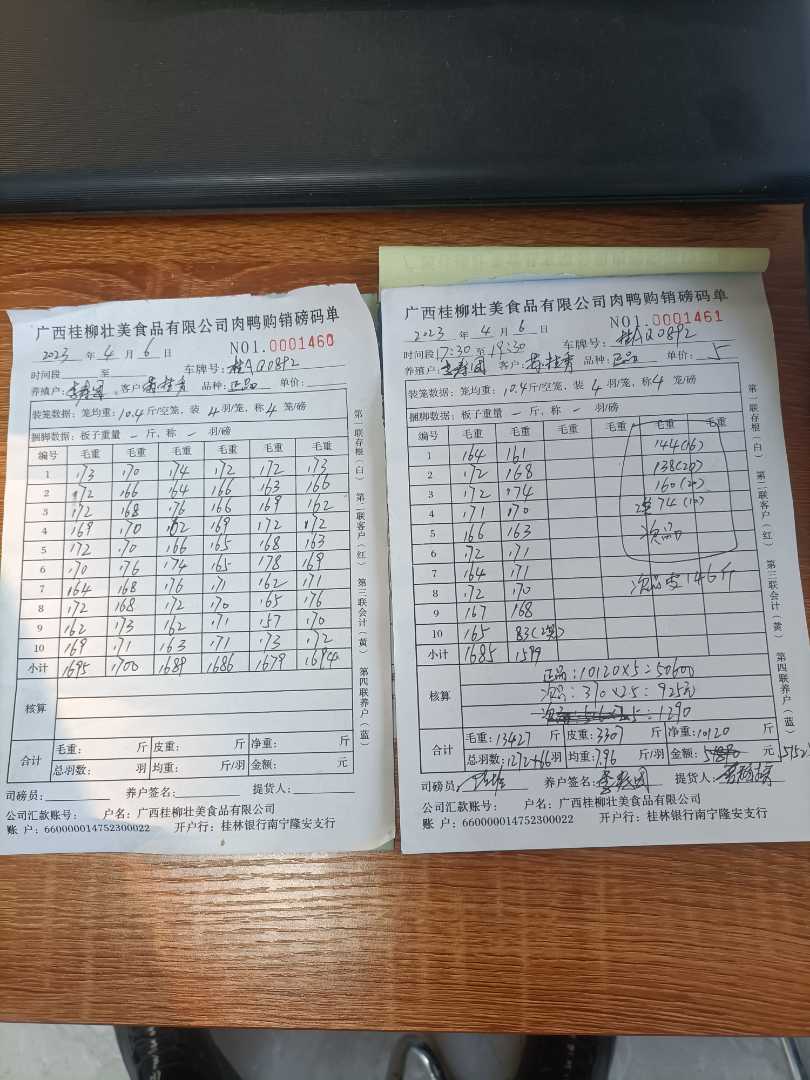 广西桂柳壮美食品有限公司肉鸭购销磅码单
2023 年 4 月 6 日 NO1.0001460
时间段 至 车牌号: 桂AQ0892
养殖户: 客户: 品种: 正品 单价:
装笼数据: 笼均重: 10.4 斤/空笼, 装 4 羽/笼, 称 4 笼/磅
捆脚数据: 板子重量 — 斤, 称 — 羽/磅
编号 毛重 毛重 毛重 毛重 毛重 毛重
1 173 170 174 172 172 173
2 172 166 164 166 163 166
3 172 168 176 166 169 162
4 169 170 162 169 172 172
5 172 170 166 165 168 163
6 170 176 174 165 178 169
7 164 168 176 171 162 171
8 172 168 172 170 165 176
9 162 173 162 171 157 170
10 169 171 163 171 173 172
小计 1695 1700 1689 1686 1679 1694
核算
合计 毛重: 斤 皮重: 斤 净重: 斤
总羽数: 羽 均重: 斤/羽 金额: 元
司磅员: 养户签名: 提货人:
公司汇款账号: 户名: 广西桂柳壮美食品有限公司
账 户: 660000014752300022 开户行: 桂林银行南宁隆安支行
第一联存根(白) 第二联客户(红) 第三联会计(黄) 第四联养户(蓝)
广西桂柳壮美食品有限公司肉鸭购销磅码单
2023 年 4 月 6 日 NO1.0001461
时间段 17:30 至 19:30 车牌号: 桂AQ0892
养殖户: 客户: 品种: 正品 单价: 5
装笼数据: 笼均重: 10.4 斤/空笼, 装 4 羽/笼, 称 4 笼/磅
捆脚数据: 板子重量 — 斤, 称 — 羽/磅
编号 毛重 毛重 毛重 毛重 毛重 毛重
1 164 161 144(16)
2 172 168 138(20)
3 172 174 160(20)
4 171 170 2笼 74(10)
5 166 163 次品
6 172 171
7 164 171 次品皮146斤
8 172 170
9 167 168
10 165 83(2笼)
小计 1685 1599
核算 正品: 10120×5=50600
次品: 370×2.5=925元
合计 毛重: 13427 斤 皮重: 3307 斤 净重: 10120 斤
总羽数: 1272+66羽 均重: 7.96 斤/羽 金额: 元
司磅员: 养户签名: 提货人:
公司汇款账号: 户名: 广西桂柳壮美食品有限公司
账 户: 660000014752300022 开户行: 桂林银行南宁隆安支行
第一联存根(白) 第二联客户(红) 第三联会计(黄) 第四联养户(蓝)